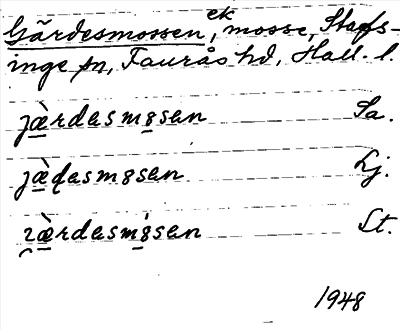 Gärdesmossen, ek mosse, Stafs-
inge sn, Faurås hd, Hall. l.
jàrdesmosen Sa.
jàdesmosen Lj.
ràrdesmosen St.
1948